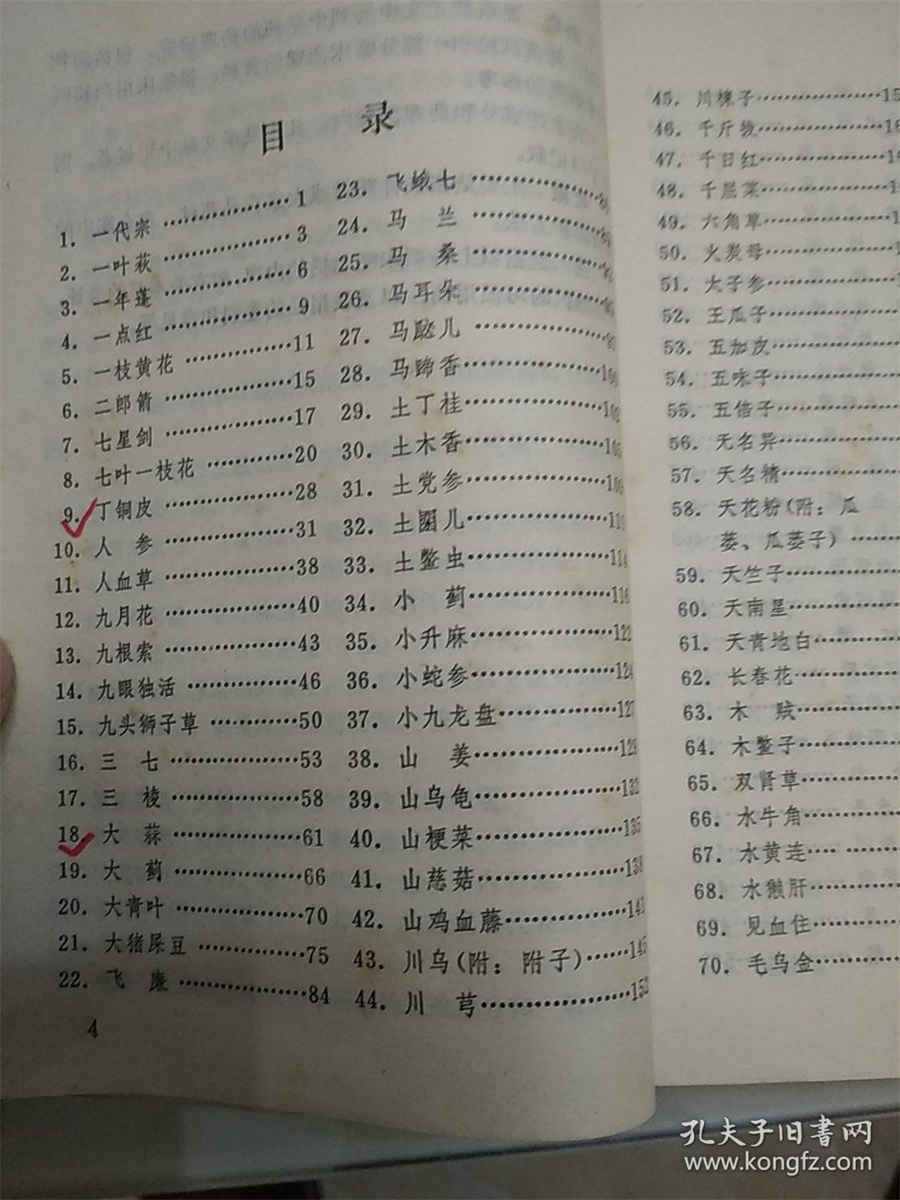 目 录
1. 一代宗 …… 1
2. 一叶萩 …… 3
3. 一年蓬 …… 6
4. 一点红 …… 9
5. 一枝黄花 …… 11
6. 二郎箭 …… 15
7. 七星剑 …… 17
8. 七叶一枝花 …… 20
9. 丁铜皮 …… 28
10. 人 参 …… 31
11. 人血草 …… 38
12. 九月花 …… 40
13. 九根索 …… 43
14. 九眼独活 …… 46
15. 九头狮子草 …… 50
16. 三 七 …… 53
17. 三 棱 …… 58
18. 大 蒜 …… 61
19. 大 蓟 …… 66
20. 大青叶 …… 70
21. 大猪屎豆 …… 75
22. 飞 廉 …… 84
4
23. 飞蛾七 ……
24. 马 兰 ……
25. 马 桑 ……
26. 马耳朵 ……
27. 马㼎儿 ……
28. 马蹄香 …… 100
29. 土丁桂 …… 102
30. 土木香 ……
31. 土党参 ……
32. 土圞儿 ……
33. 土鳖虫 …… 114
34. 小 蓟 …… 116
35. 小升麻 …… 122
36. 小蛇参 …… 124
37. 小九龙盘 …… 127
38. 山 姜 …… 129
39. 山乌龟 …… 132
40. 山梗菜 …… 135
41. 山慈菇 …… 138
42. 山鸡血藤 …… 143
43. 川乌(附：附子) …… 145
44. 川 芎 …… 152
45. 川楝子 …… 15
46. 千斤拔 …… 16
47. 千日红 …… 1
48. 千层菜 …… 1
49. 六角草 …… 1
50. 火炭母 ……
51. 太子参 ……
52. 王瓜子 ……
53. 五加皮 ……
54. 五味子 ……
55. 五倍子 ……
56. 无名异 ……
57. 天名精 ……
58. 天花粉(附：瓜
蒌、瓜蒌子) ……
59. 天竺子 ……
60. 天南星 ……
61. 天青地白 ……
62. 长春花 ……
63. 木 贼 ……
64. 木鳖子 ……
65. 双肾草 ……
66. 水牛角 ……
67. 水黄连 ……
68. 水獭肝 ……
69. 见血住 ……
70. 毛乌金 ……
孔夫子旧书网
www.kongfz.com